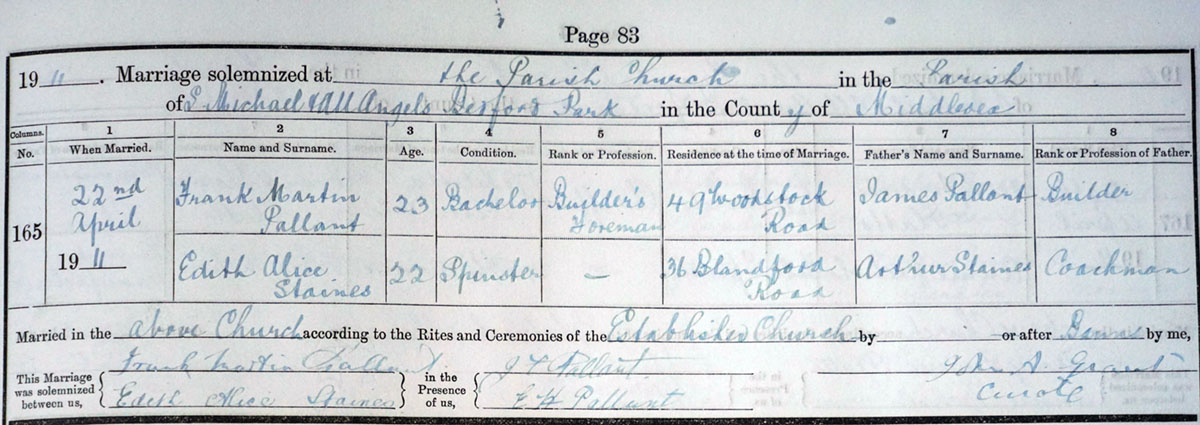 Page 83
19 11. Marriage solemnized at the Parish Church in the Parish
of S Michael & All Angels Bedford Park in the County of Middlesex
Columns. 1 2 3 4 5 6 7 8
No. When Married. Name and Surname. Age. Condition. Rank or Profession. Residence at the time of Marriage. Father's Name and Surname. Rank or Profession of Father
22nd Frank Martin 23 Bachelor Builder's 49 Woodstock James Pallant Builder
April Pallant Foreman Road
165
19 11 Edith Alice 22 Spinster — 36 Blandford Arthur Staines Coachman
Staines Road
Married in the above Church according to the Rites and Ceremonies of the Established Church by or after Banns by me,
Frank Martin Pallant Pallant John A. Grant
This Marriage was solemnized between us, in the Presence of us,
Edith Alice Staines Pallant Curate